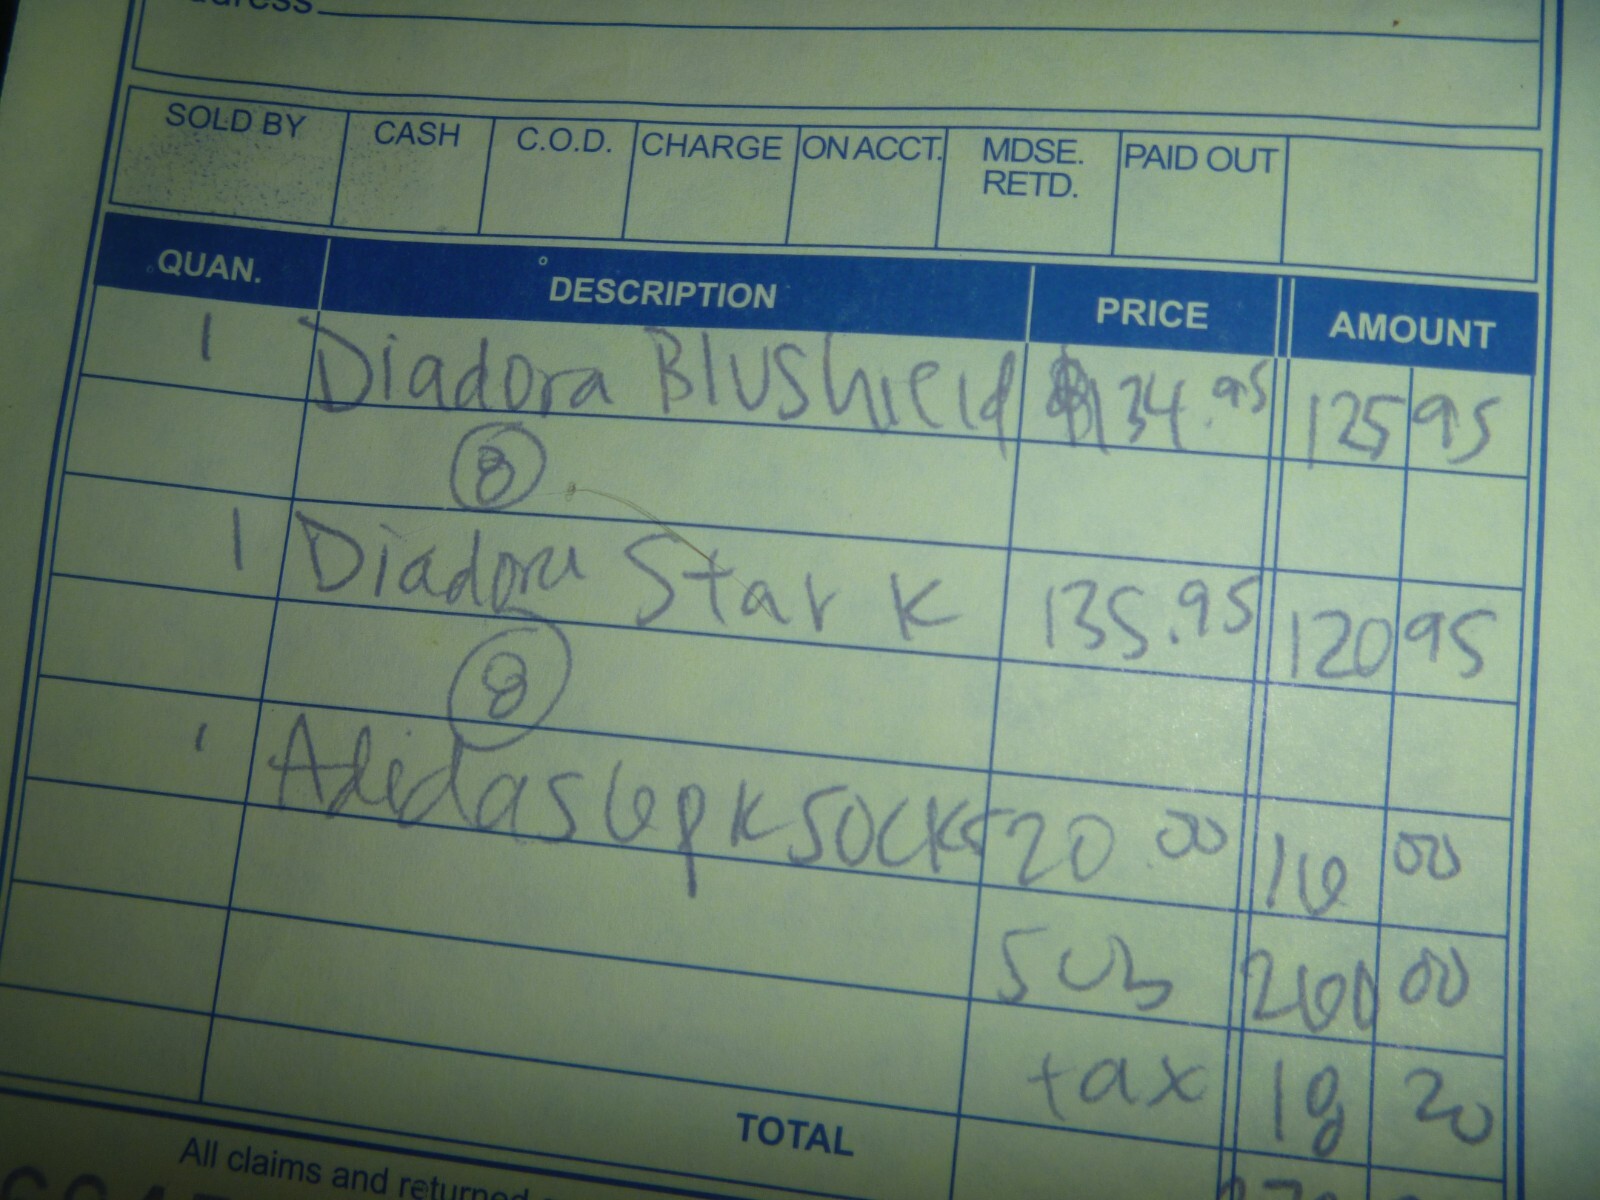 SOLD BY CASH C.O.D. CHARGE ON ACCT. MDSE. RETD. PAID OUT
QUAN. DESCRIPTION PRICE AMOUNT
1 Diadora Blushield $134.95 125 95
8
1 Diadora Star K 135.95 120 95
8
1 Adidas 6pk socks 20.00 16 00
Sub 260 00
tax 18 20
TOTAL
All claims and returned